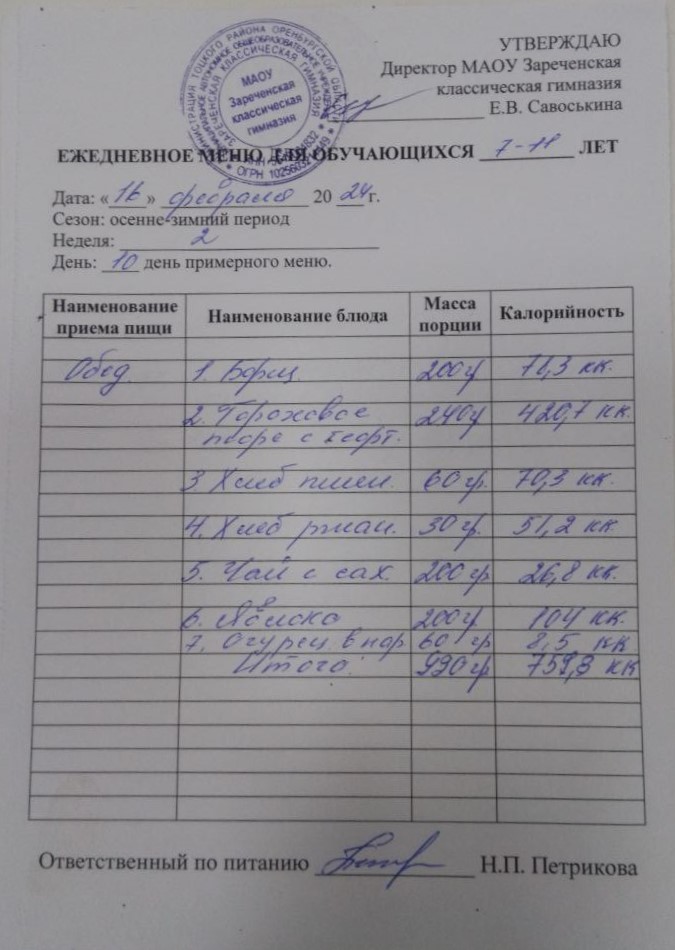 УТВЕРЖДАЮ
Директор МАОУ Зареченская
классическая гимназия
Е.В. Савоськина
МАОУ
Зареченская
классическая
гимназия
ЕЖЕДНЕВНОЕ МЕНЮ ДЛЯ ОБУЧАЮЩИХСЯ 7-11 ЛЕТ
Дата: «16» февраля 2024 г.
Сезон: осенне-зимний период
Неделя: 2
День: 10 день примерного меню.
Наименование приема пищи Наименование блюда Масса порции Калорийность
Обед 1. Борщ 200гр 71,3 кк.
2. Гороховое 240гр 420,7 кк.
пюре с тефт.
3 Хлеб пшен. 60 гр. 70,3 кк.
4. Хлеб ржан. 30 гр. 51,2 кк.
5. Чай с сах. 200 гр 26,8 кк.
6. Яблоко 200гр 104 кк.
7. Огурец. в нар 60 гр 8,5 кк
Итого: 990 гр 759,3 кк
Ответственный по питанию Н.П. Петрикова